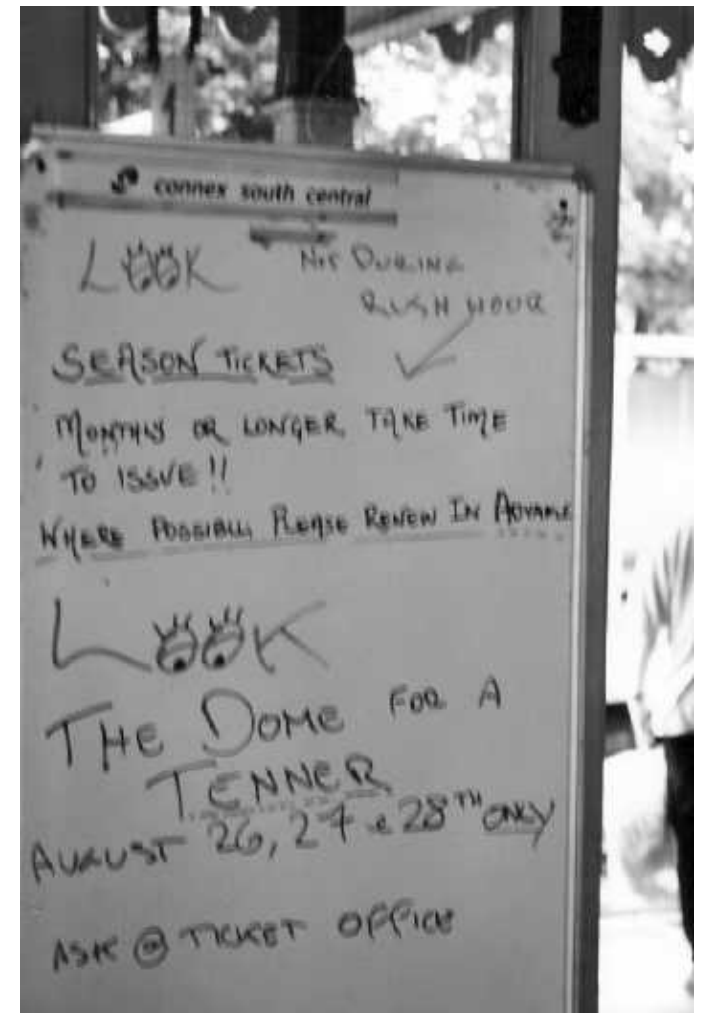 connex south central
LOOK
NOT DURING
RUSH HOUR
SEASON TICKETS
MONTHLY OR LONGER TAKE TIME
TO ISSUE!!
WHERE POSSIBLE, PLEASE RENEW IN ADVANCE
LOOK
THE DOME FOR A
TENNER
AUGUST 26, 27 & 28TH ONLY
ASK @ TICKET OFFICE